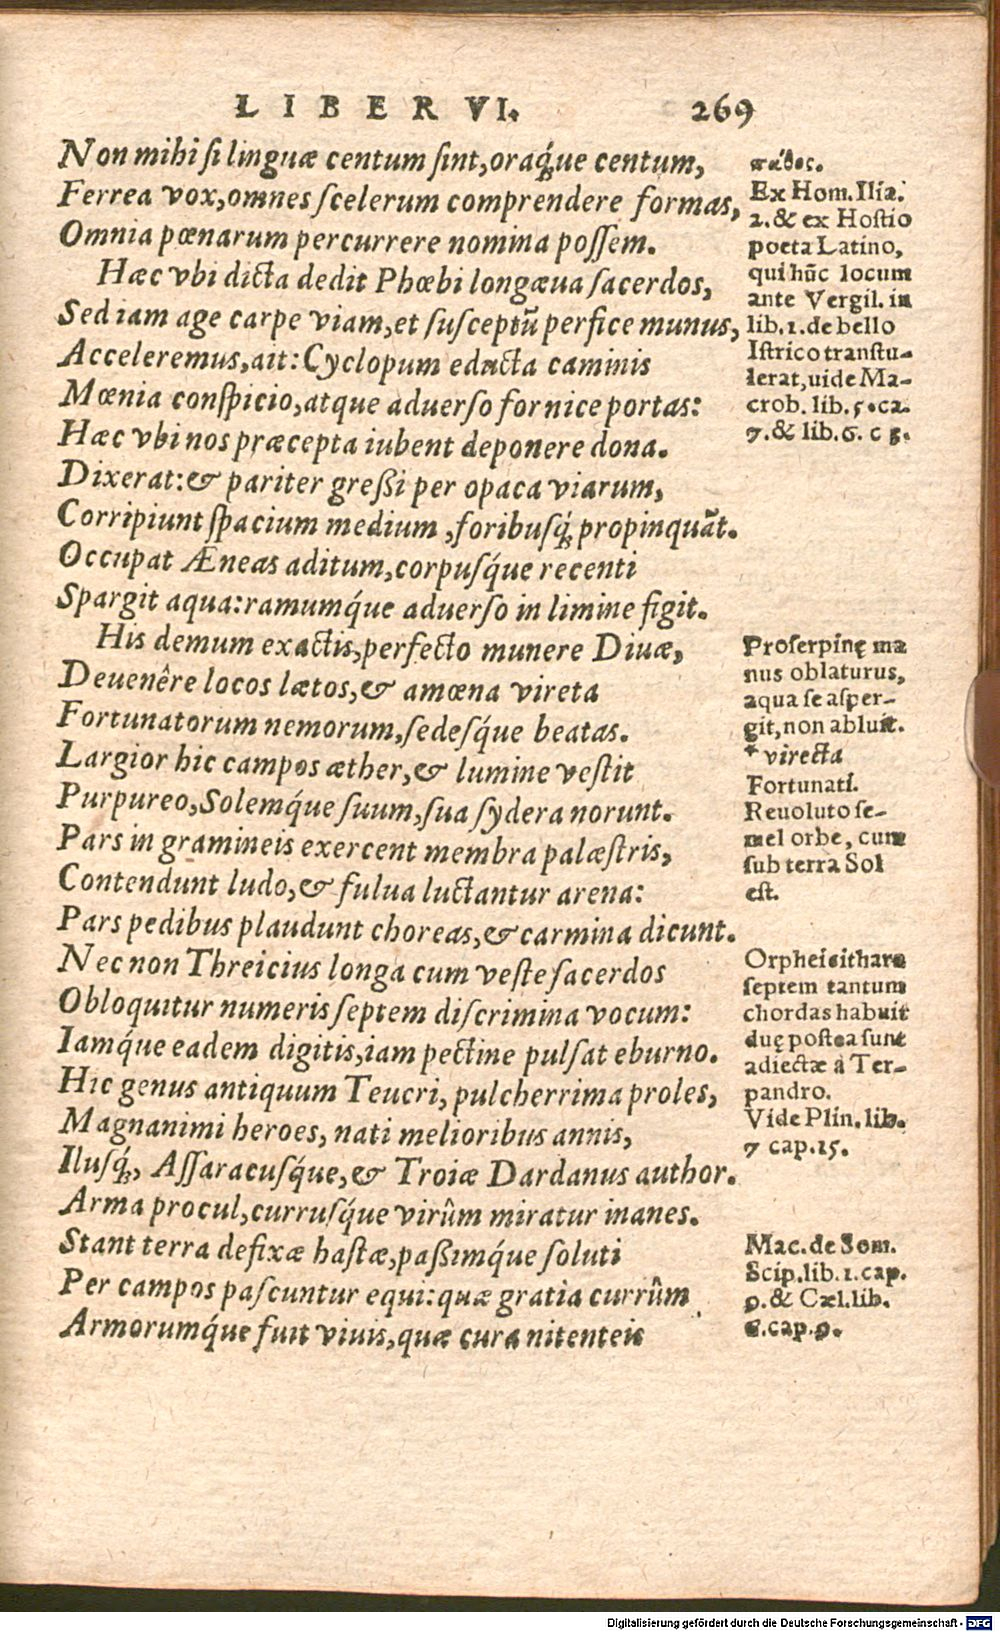 LIBER VI. 269
Non mihi si linguæ centum sint, oraq́ue centum,
Ferrea vox, omnes scelerum comprendere formas,
Omnia pœnarum percurrere nomina possem.
Hæc vbi dicta dedit Phœbi longæua sacerdos,
Sed iam age carpe viam, et susceptū perfice munus,
Acceleremus, ait: Cyclopum educta caminis
Mœnia conspicio, atque aduerso fornice portas:
Hæc vbi nos præcepta iubent deponere dona.
Dixerat: & pariter greßi per opaca viarum,
Corripiunt spacium medium, foribusq́; propinquāt.
Occupat Æneas aditum, corpusq́ue recenti
Spargit aqua: ramumq́ue aduerso in limine figit.
His demum exactis, perfecto munere Diuæ,
Deuenêre locos lætos, & amœna vireta
Fortunatorum nemorum, sedesq́ue beatas.
Largior hic campos æther, & lumine vestit
Purpureo, Solemq́ue suum, sua sydera norunt.
Pars in gramineis exercent membra palæstris,
Contendunt ludo, & fulua luctantur arena:
Pars pedibus plaudunt choreas, & carmina dicunt.
Nec non Threicius longa cum veste sacerdos
Obloquitur numeris septem discrimina vocum:
Iamq́ue eadem digitis, iam pectine pulsat eburno.
Hic genus antiquum Teucri, pulcherrima proles,
Magnanimi heroes, nati melioribus annis,
Ilusq́;, Assaracusq́ue, & Troiæ Dardanus author.
Arma procul, currusq́ue virûm miratur inanes.
Stant terra defixæ hastæ, paßimq́ue soluti
Per campos pascuntur equi: quæ gratia currûm
Armorumq́ue fuit viuis, quæ cura nitenteis
πάθος.
Ex Hom. Ilia.
2. & ex Hostio
poeta Latino,
qui hūc locum
ante Vergil. in
lib. 1. de bello
Istrico transtu-
lerat, uide Ma-
crob. lib. 5. ca.
7. & lib. 6. c 3.
Proserpinę ma
nus oblaturus,
aqua se asper-
git, non abluit.
* virecta
Fortunati.
Reuoluto se-
mel orbe, cum
sub terra Sol
est.
Orphei cithara
septem tantum
chordas habuit
duę postea sunt
adiectæ à Ter-
pandro.
Vide Plin. lib.
7 cap. 15.
Mac. de Som.
Scip. lib. 1. cap.
9. & Cæl. lib.
6. cap. 9.
Digitalisierung gefördert durch die Deutsche Forschungsgemeinschaft - DFG